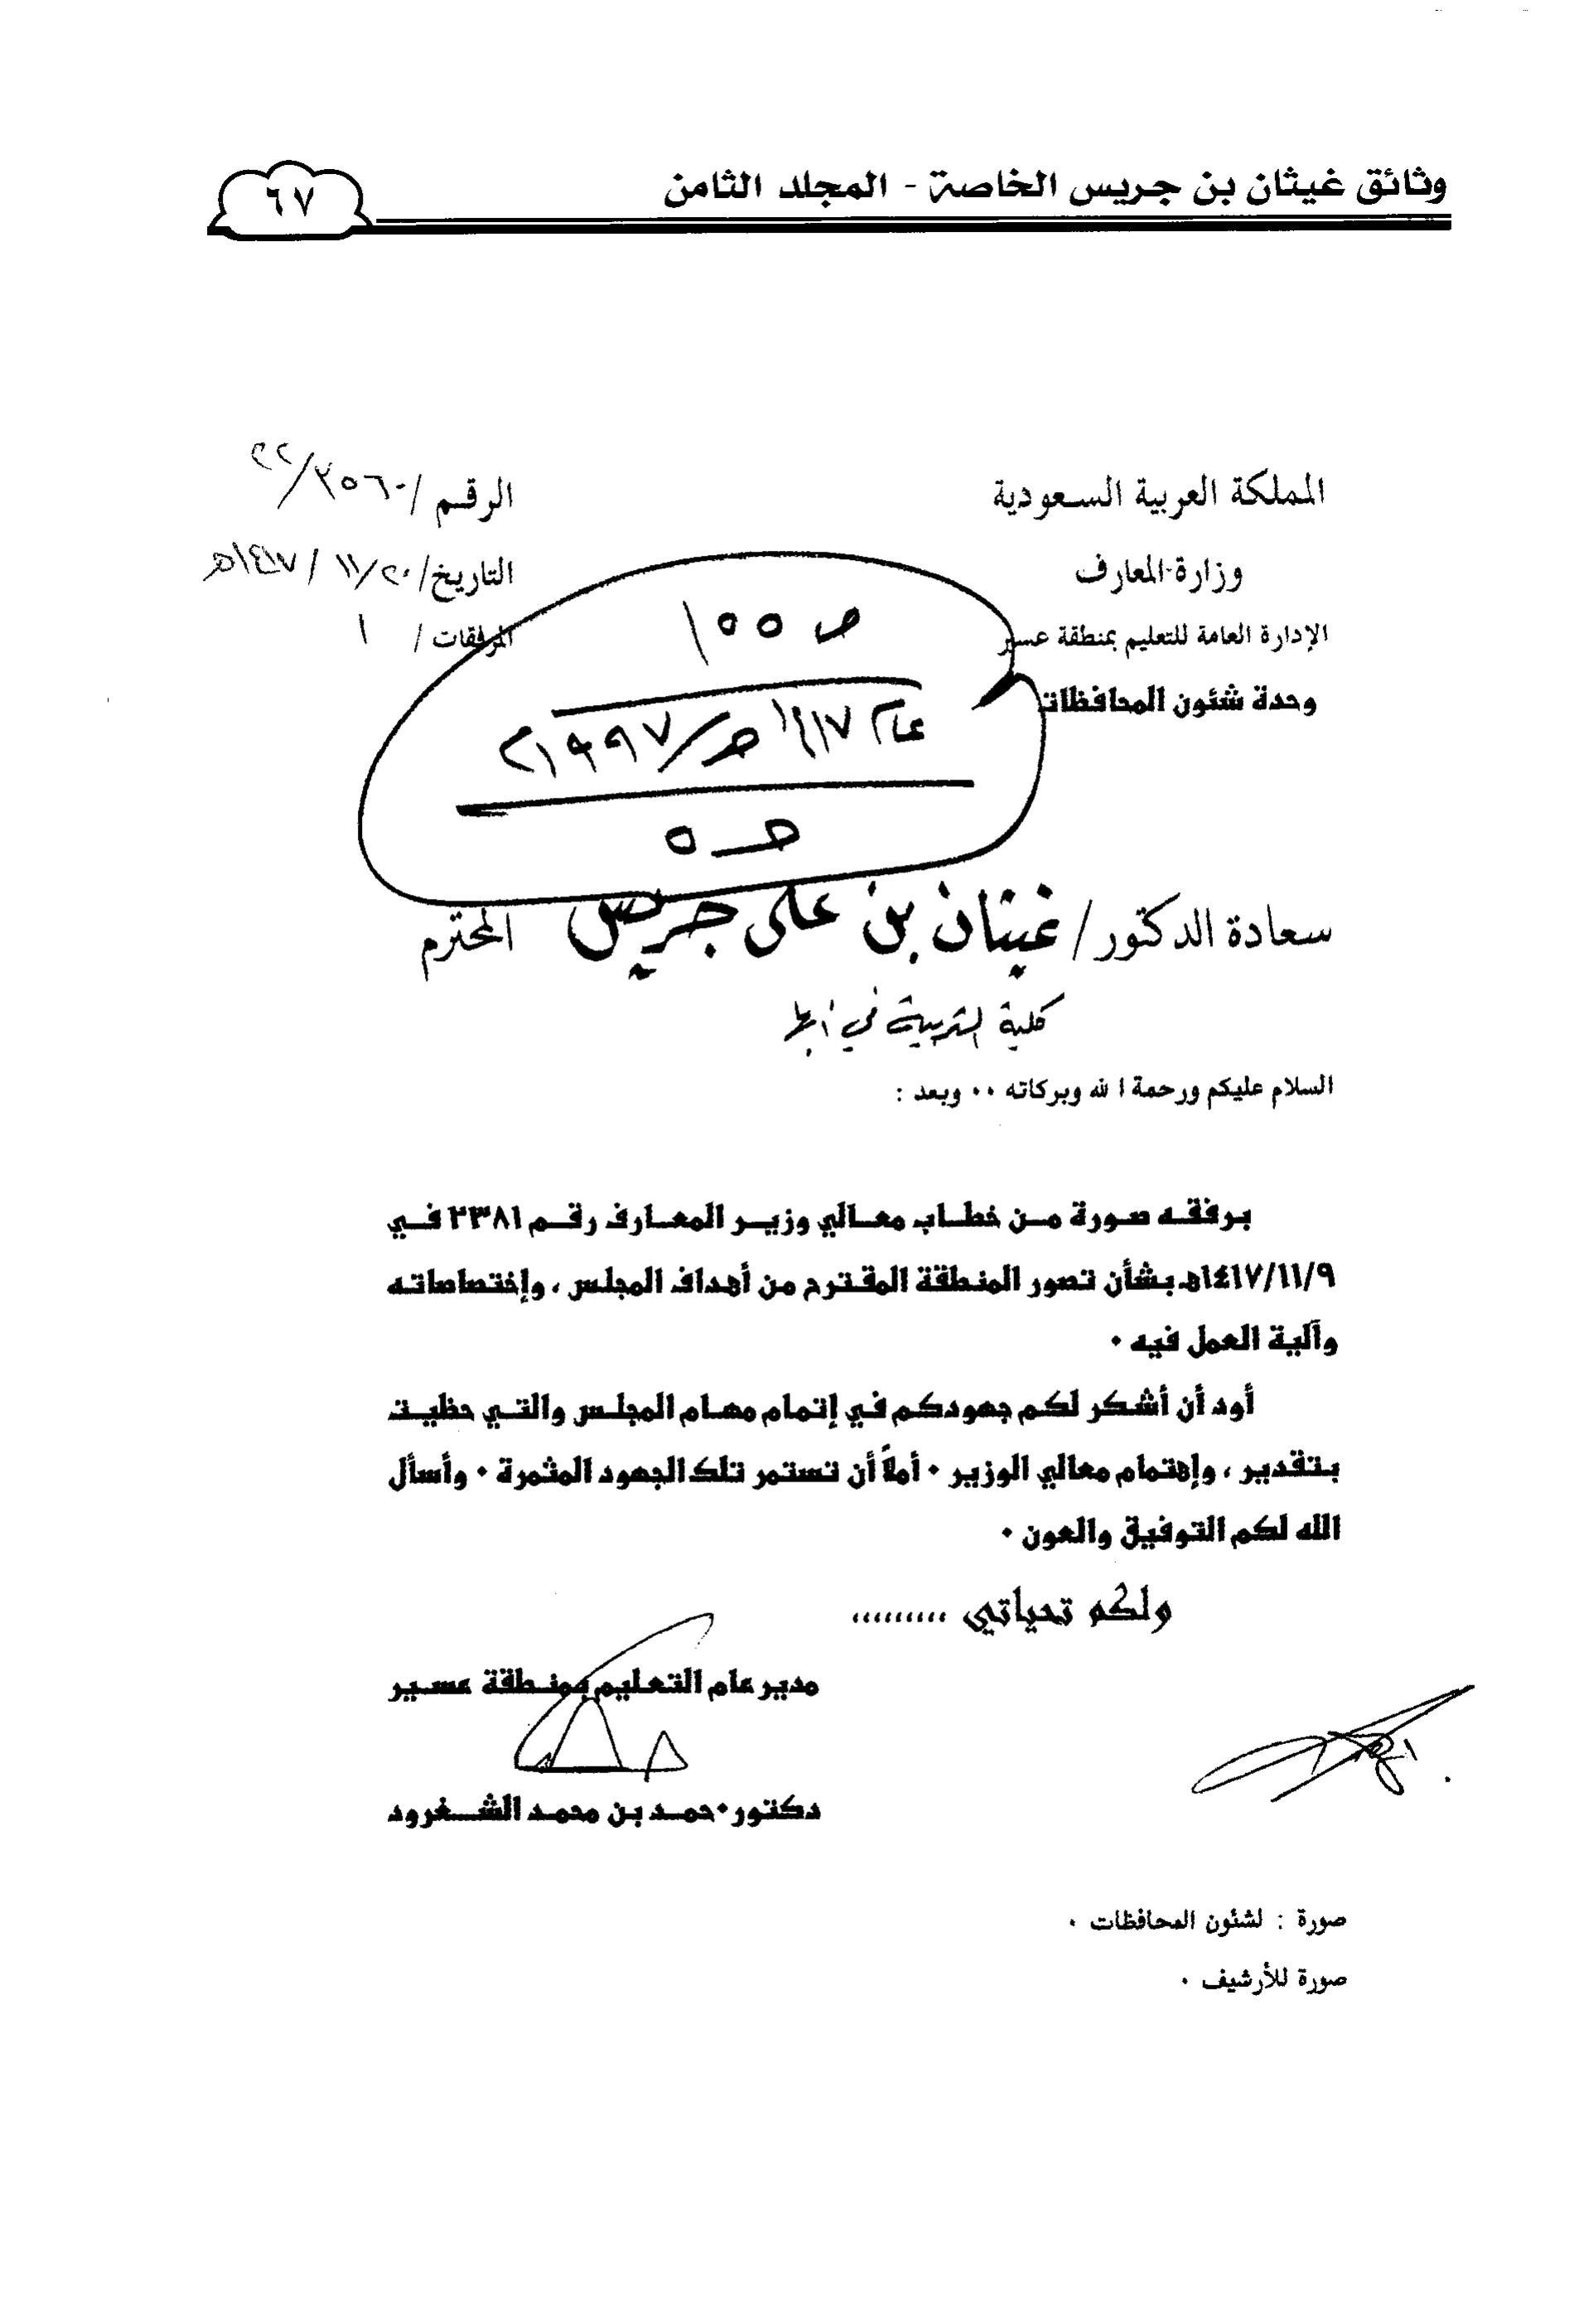 وثائق غيثان بن جريس الخاصة - المجلد الثامن
٦٧
المملكة العربية السعودية
وزارة المعارف
الإدارة العامة للتعليم بمنطقة عسير
وحدة شئون المحافظات
الرقم / ٢٢/٢٥٦٠
التاريخ/ ٢٠/١١ / ١٤١٧هـ
المرفقات / ١
ص ١٥٥
عام ١٤١٧هـ/١٩٩٧م
سعادة الدكتور/ غيثان بن علي جريس المحترم
كلية التربية في أبها
السلام عليكم ورحمة الله وبركاته ٠٠ وبعد :
برفقه صورة من خطاب معالي وزير المعارف رقم ٢٣٨١ في
١٤١٧/١١/٩هـ بشأن تصور المنطقة المقترح من أهداف المجلس ، وإختصاصاته
وآلية العمل فيه ٠
أود أن أشكر لكم جهودكم في إتمام مهام المجلس والتي حظيت
بتقدير ، وإهتمام معالي الوزير ٠ أملاً أن تستمر تلك الجهود المثمرة ٠ وأسأل
الله لكم التوفيق والعون ٠
ولكم تحياتي ،،،،،،،،،
مدير عام التعليم بمنطقة عسير
دكتور٠حمد بن محمد الشغرود
صورة : لشئون المحافظات ٠
صورة للأرشيف ٠